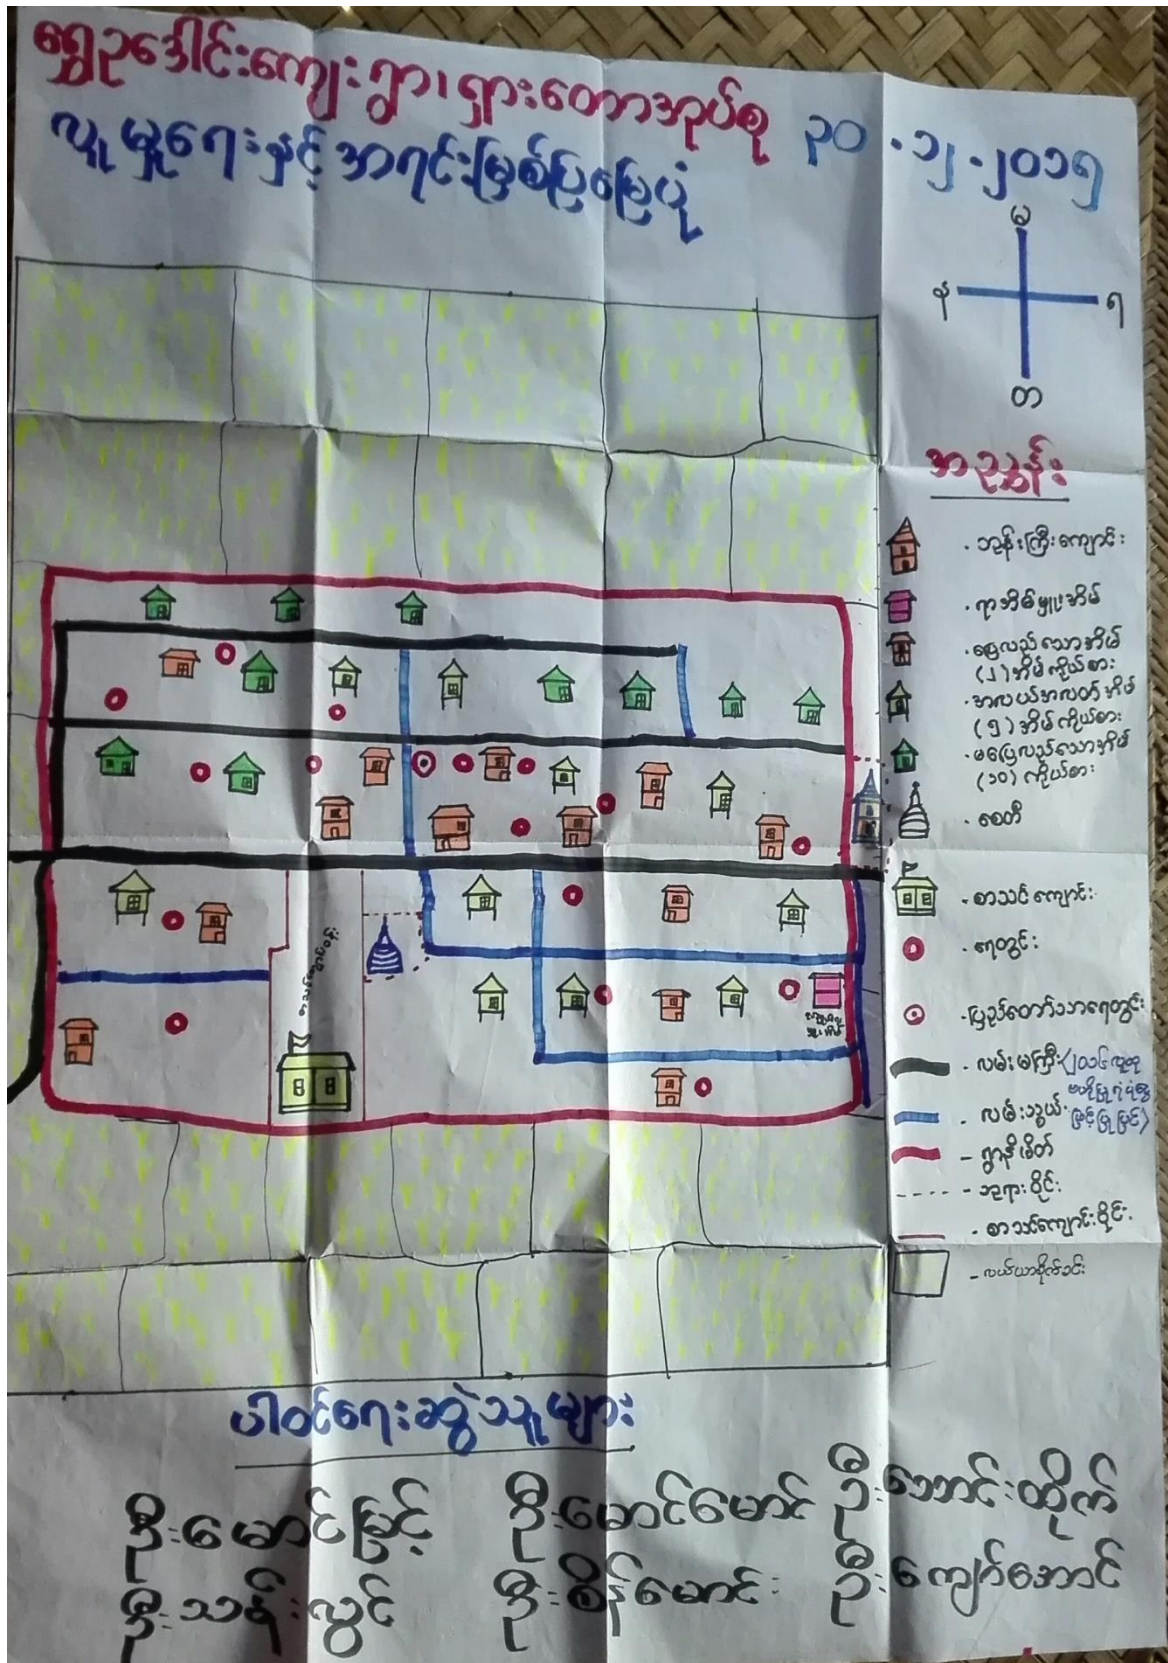 ရွှေဥဒေါင်းကျေးရွာ၊ ရှားတောအုပ်စု ၃၀.၁၂.၂၀၁၅
လူမှုရေးနှင့်အရင်းမြစ်ပြမြေပုံ
မ
န ရ
တ
အညွှန်း
. ဘုန်းကြီးကျောင်း
. ရာအိမ်မှူးအိမ်
. ပြေလည်သောအိမ်
(၂) အိမ်ကိုယ်စား
. အလယ်အလတ်အိမ်
(၅) အိမ်ကိုယ်စား
. မပြေလည်သောအိမ်
(၁၀) ကိုယ်စား
. စေတီ
. စာသင်ကျောင်း
. ရေတွင်း
. ပြည်တော်သာရေတွင်း
. လမ်းမကြီး
. လမ်းသွယ်
- ရွာနိမိတ်
- ဘုရားဝိုင်း
. စာသင်ကျောင်းဝိုင်း
- လယ်ယာစိုက်ခင်း
ပါဝင်ရေးဆွဲသူများ
ဦးမောင်မြင့် ဦးမောင်မောင် ဦးအောင်းထိုက်
ဦးသန်းလွင် ဦးစိန်မောင်း ဦးကျော်အောင်